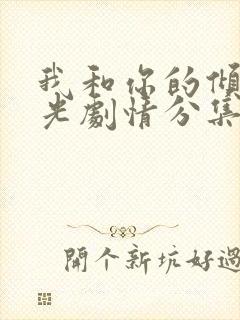 我和你的傾
光劇情分集
開個新坑好過